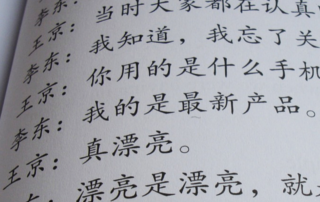 李东：
王京：当时大家都在认真
李东：我知道，我忘了关
王京：你用的是什么手机
李东：我的是最新产品。
王京：真漂亮。
李东：漂亮是漂亮，就